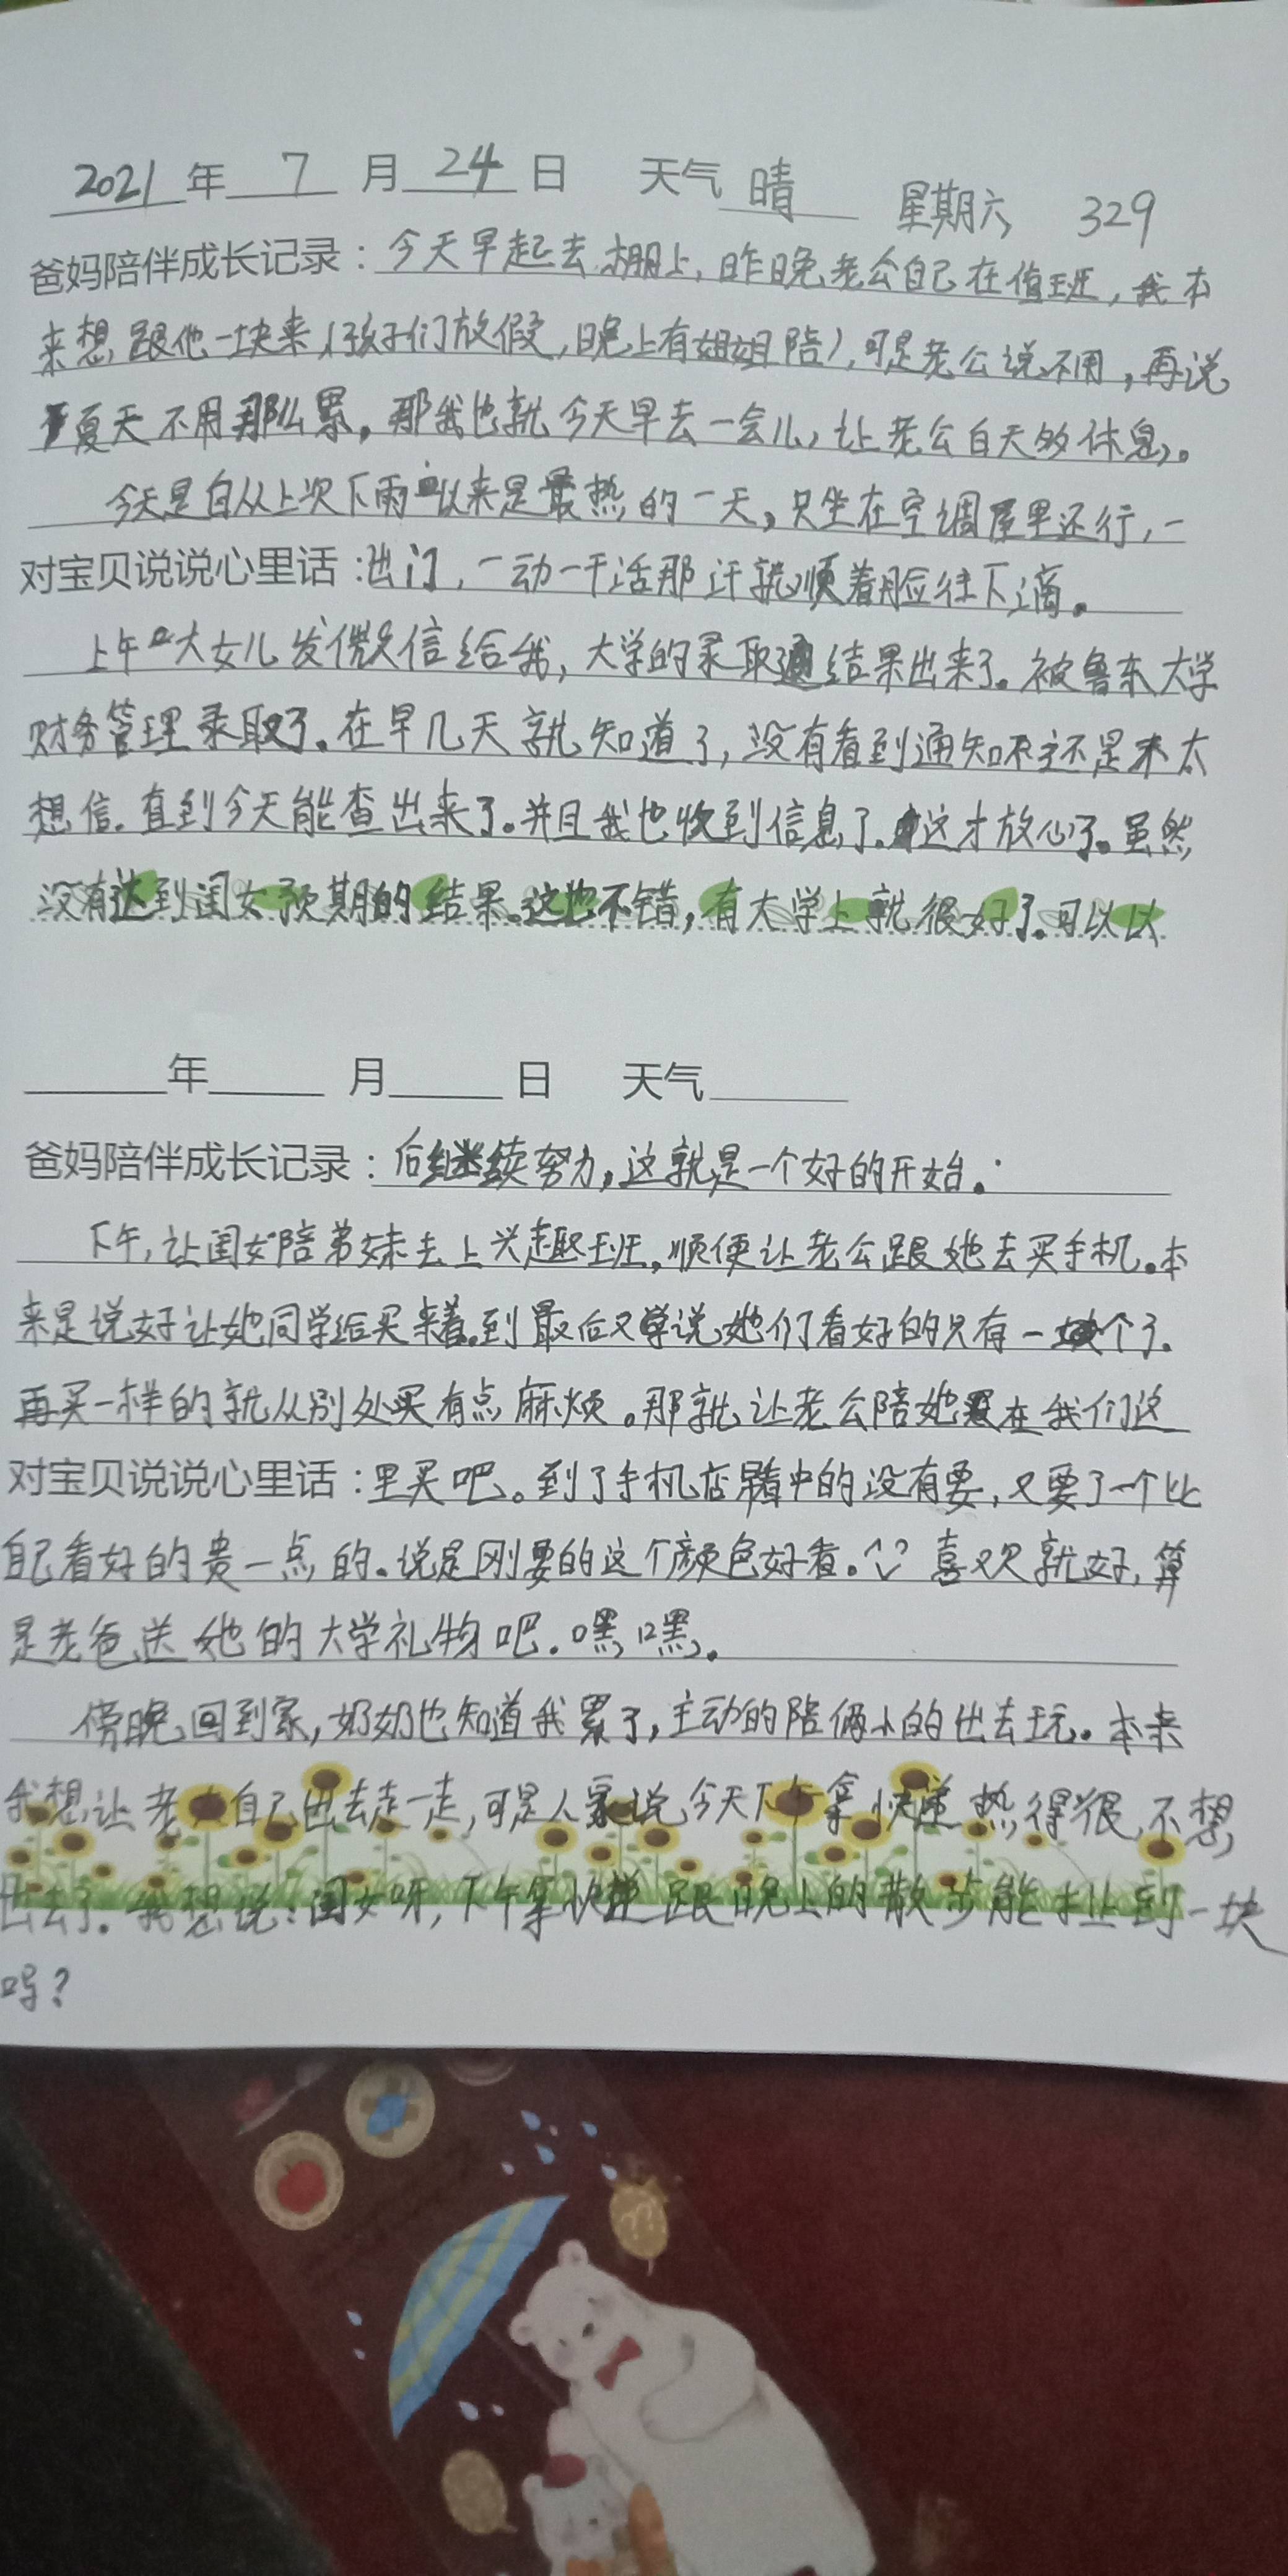 2021年 7 月 24 日 天气 晴 星期六 329
爸妈陪伴成长记录：今天早起去棚上，昨晚老公自己在值班，我本
来想跟他一块来（孩子们放假，晚上有姐姐陪），可是老公说不用，再说
夏天不用那么累。那我也就今天早去一会儿，让老公白天多休息。
今天是自从上次下雨以来是最热的一天，只坐在空调屋里还行，一
对宝贝说说心里话：出门，一动一干活那汗就顺着脸往下滴。
上午大女儿发微信给我，大学的录取结果出来了。被鲁东大学
财务管理录取了。在早几天就知道了，没有看到通知还是不太
想信．直到今天能查出来了。并且我也收到信息了．这才放心了。虽然
没有达到闺女预期的结果。这也不错，有大学上就很好了．可以以
年 月 日 天气
爸妈陪伴成长记录：后继续努力，这就是一个好的开始。
下午，让闺女陪弟妹去上兴趣班，顺便让老公跟她去买手机。本
来是说好让她同学给买来着．到最后又说她们看好的只有一个了．
再买一样的就从别处买有点麻烦。那就让老公陪她在我们这
对宝贝说说心里话：里买吧。到了手机店看中的没有要，又要了一个比
自己看好的贵一点的．说是刚要的这个颜色好看。喜欢就好，算
是老爸送她的大学礼物吧．嘿嘿。
傍晚回到家，奶奶也知道我累了，主动的陪俩小的出去玩。本来
我想让老大自己出去走一走，可是人家说今天下午拿快递热得很，不想
出去了．我想说：闺女呀，下午拿快递跟晚上的散步能扯到一块
吗？